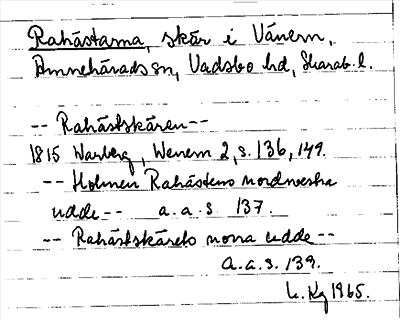 Rahästarna, skär i Vänern,
Amnehärads sn, Vadsbo hd, Skarab. l.
-- Rahästskären --
1815 Warberg, Wenern 2, s. 136, 149.
-- Holmen Rahästens nordvestra
udde -- a.a.s. 137.
-- Rahästskärets norra udde --
a.a.s. 139.
L. Kg 1965.